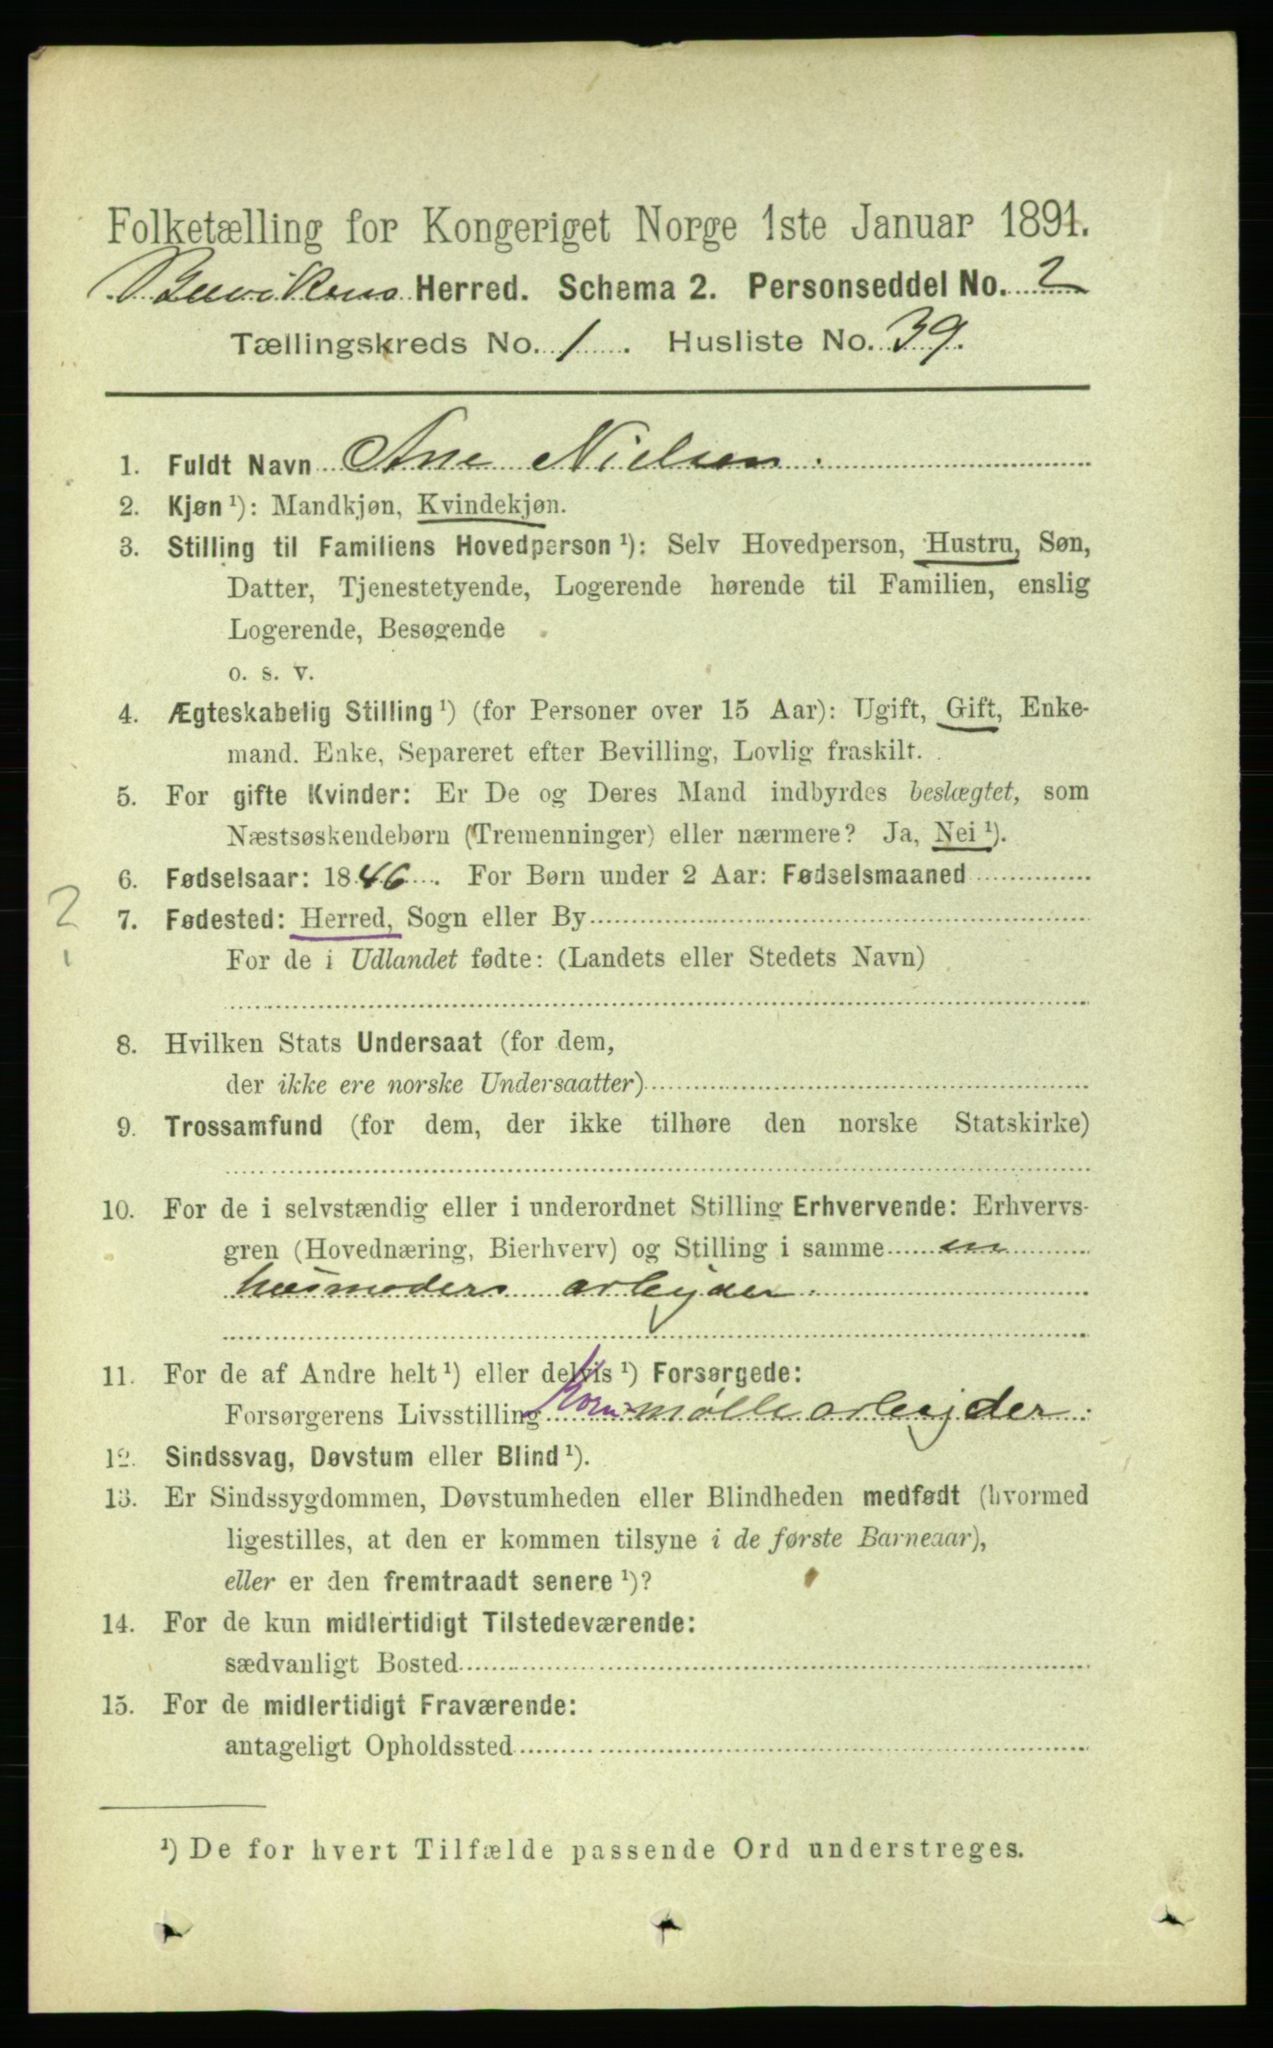 Folketælling for Kongeriget Norge 1ste Januar 1891.
Buvikens Herred. Schema 2. Personseddel No. 2
Tællingskreds No. 1. Husliste No. 39.
1. Fuldt Navn Ane Nielsen.
2. Kjøn ¹): Mandkjøn, Kvindekjøn.
3. Stilling til Familiens Hovedperson ¹): Selv Hovedperson, Hustru, Søn,
Datter, Tjenestetyende, Logerende hørende til Familien, enslig
Logerende, Besøgende
o. s. v.
4. Ægteskabelig Stilling ¹) (for Personer over 15 Aar): Ugift, Gift, Enke-
mand. Enke, Separeret efter Bevilling, Lovlig fraskilt.
5. For gifte Kvinder: Er De og Deres Mand indbyrdes beslægtet, som
Næstsøskendebørn (Tremenninger) eller nærmere? Ja, Nei ¹).
6. Fødselsaar: 1846. For Børn under 2 Aar: Fødselsmaaned
2
7. Fødested: Herred, Sogn eller By
1
For de i Udlandet fødte: (Landets eller Stedets Navn)
8. Hvilken Stats Undersaat (for dem,
der ikke ere norske Undersaatter)
9. Trossamfund (for dem, der ikke tilhøre den norske Statskirke)
10. For de i selvstændig eller i underordnet Stilling Erhvervende: Erhvervs-
gren (Hovednæring, Bierhverv) og Stilling i samme en
husmoders arbeyder.
11. For de af Andre helt ¹) eller delvis ¹) Forsørgede:
Forsørgerens Livsstilling Korn-møllearbeyder.
12. Sindssvag, Døvstum eller Blind ¹).
13. Er Sindssygdommen, Døvstumheden eller Blindheden medfødt (hvormed
ligestilles, at den er kommen tilsyne i de første Barneaar),
eller er den fremtraadt senere ¹)?
14. For de kun midlertidigt Tilstedeværende:
sædvanligt Bosted
15. For de midlertidigt Fraværende:
antageligt Opholdssted
¹) De for hvert Tilfælde passende Ord understreges.